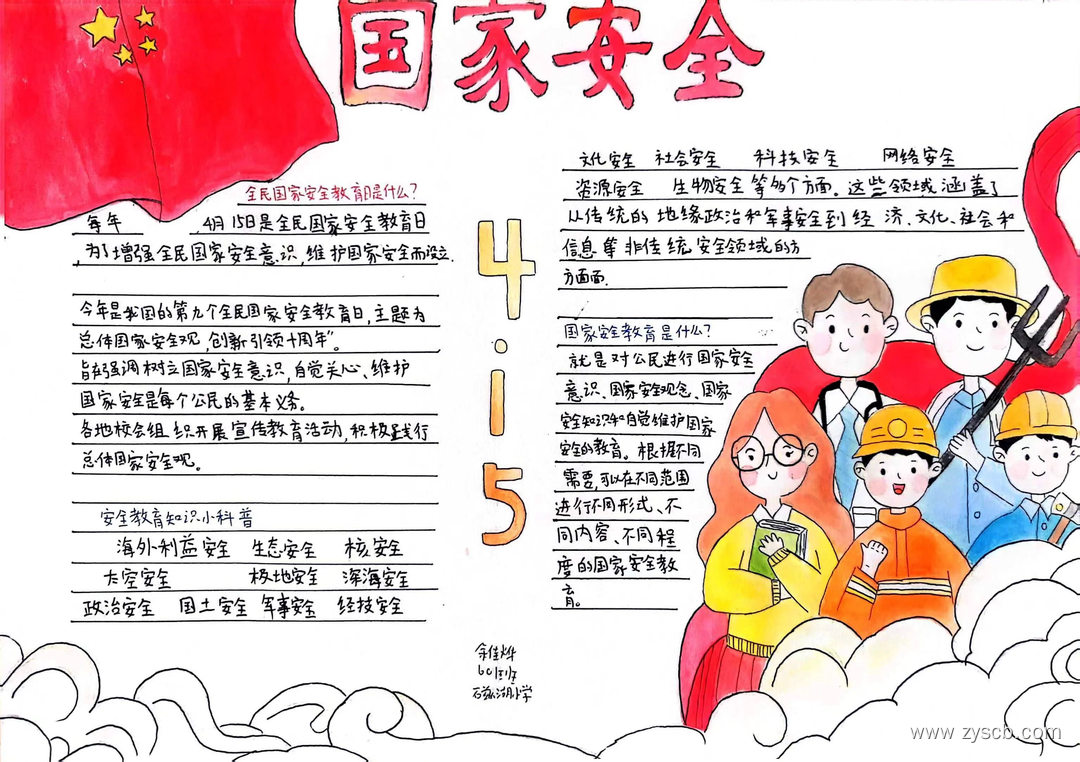 国家安全
全民国家安全教育日是什么?
每年 4月15日是全民国家安全教育日
,为了增强全民国家安全意识,维护国家安全而设立.
今年是我国的第九个全民国家安全教育日,主题为
总体国家安全观,创新引领十周年”。
旨在强调树立国家安全意识,自觉关心、维护
国家安全是每个公民的基本义务。
各地校会组织开展宣传教育活动,积极践行
总体国家安全观。
安全教育知识小科普
海外利益安全 生态安全 核安全
太空安全 极地安全 深海安全
政治安全 国土安全 军事安全 经技安全
4.15
文化安全 社会安全 科技安全 网络安全
资源安全 生物安全等多个方面。这些领域涵盖了
从传统的地缘政治和军事安全到经济、文化、社会和
信息等非传统安全领域的方
方面面.
国家安全教育是什么?
就是对公民进行国家安全
意识、国家安全观念、国家
安全知识和自觉维护国家
安全的教育。根据不同
需要,可以在不同范围
进行不同形式、不
同内容、不同程
度的国家安全教
育。
601班
小学
www.zyscb.com